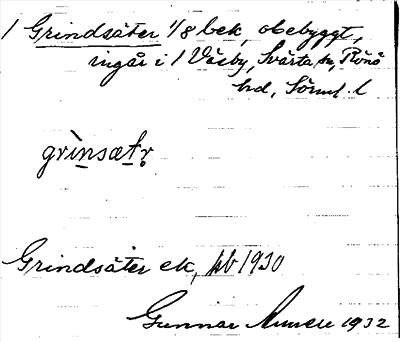 1 Grindsäter 1/8 bek, obebyggt,
ingår i 1 Väsby, Svärta sn, Rönö
hd, Sörml. l
grìnsætr
Grindsäter ek, jb 1930
Gunnar 1932